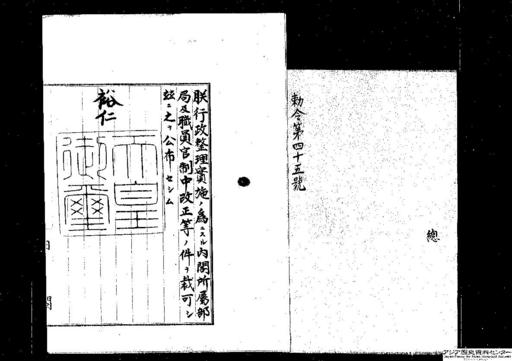 勅令第四十五號
總
朕行政整理實施ノ為ニスル內閣所屬部
局及職員官制中改正等ノ件ヲ裁可シ
玆ニ之ヲ公布セシム
裕仁
天皇
御璽
アジア歴史資料センター